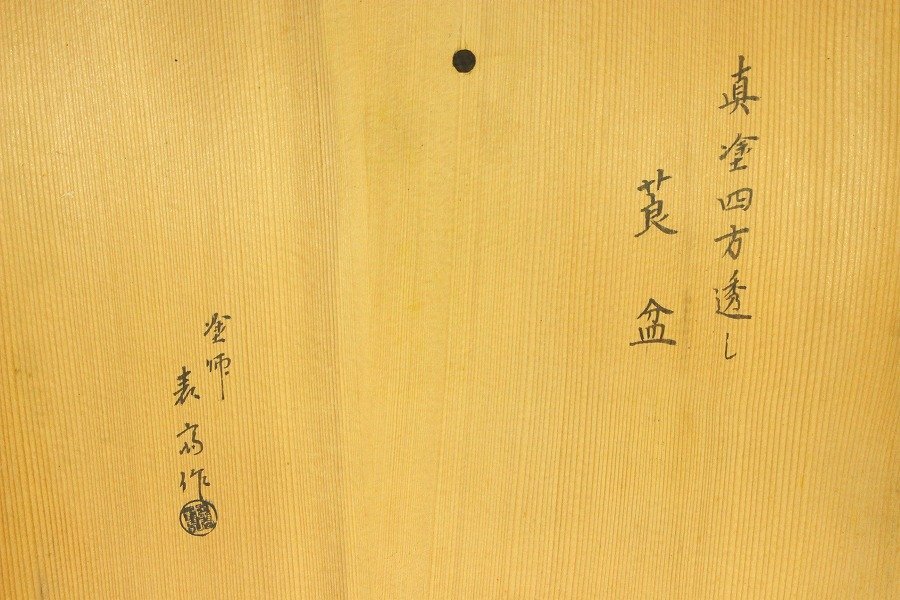 真塗四方透し
莨盆
塗師
表斎作